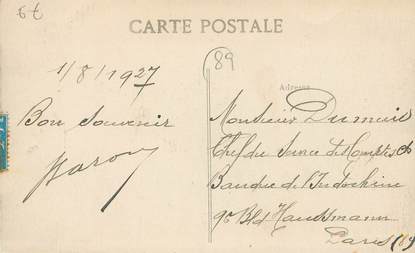 6t
CARTE POSTALE
89
1/8/1927
Adresse
Bon souvenir
Monsieur Dumeuil
Chef du Service de Comptes Cts
Banque de l'Indochine
96 Bld Haussmann
Paris (89)